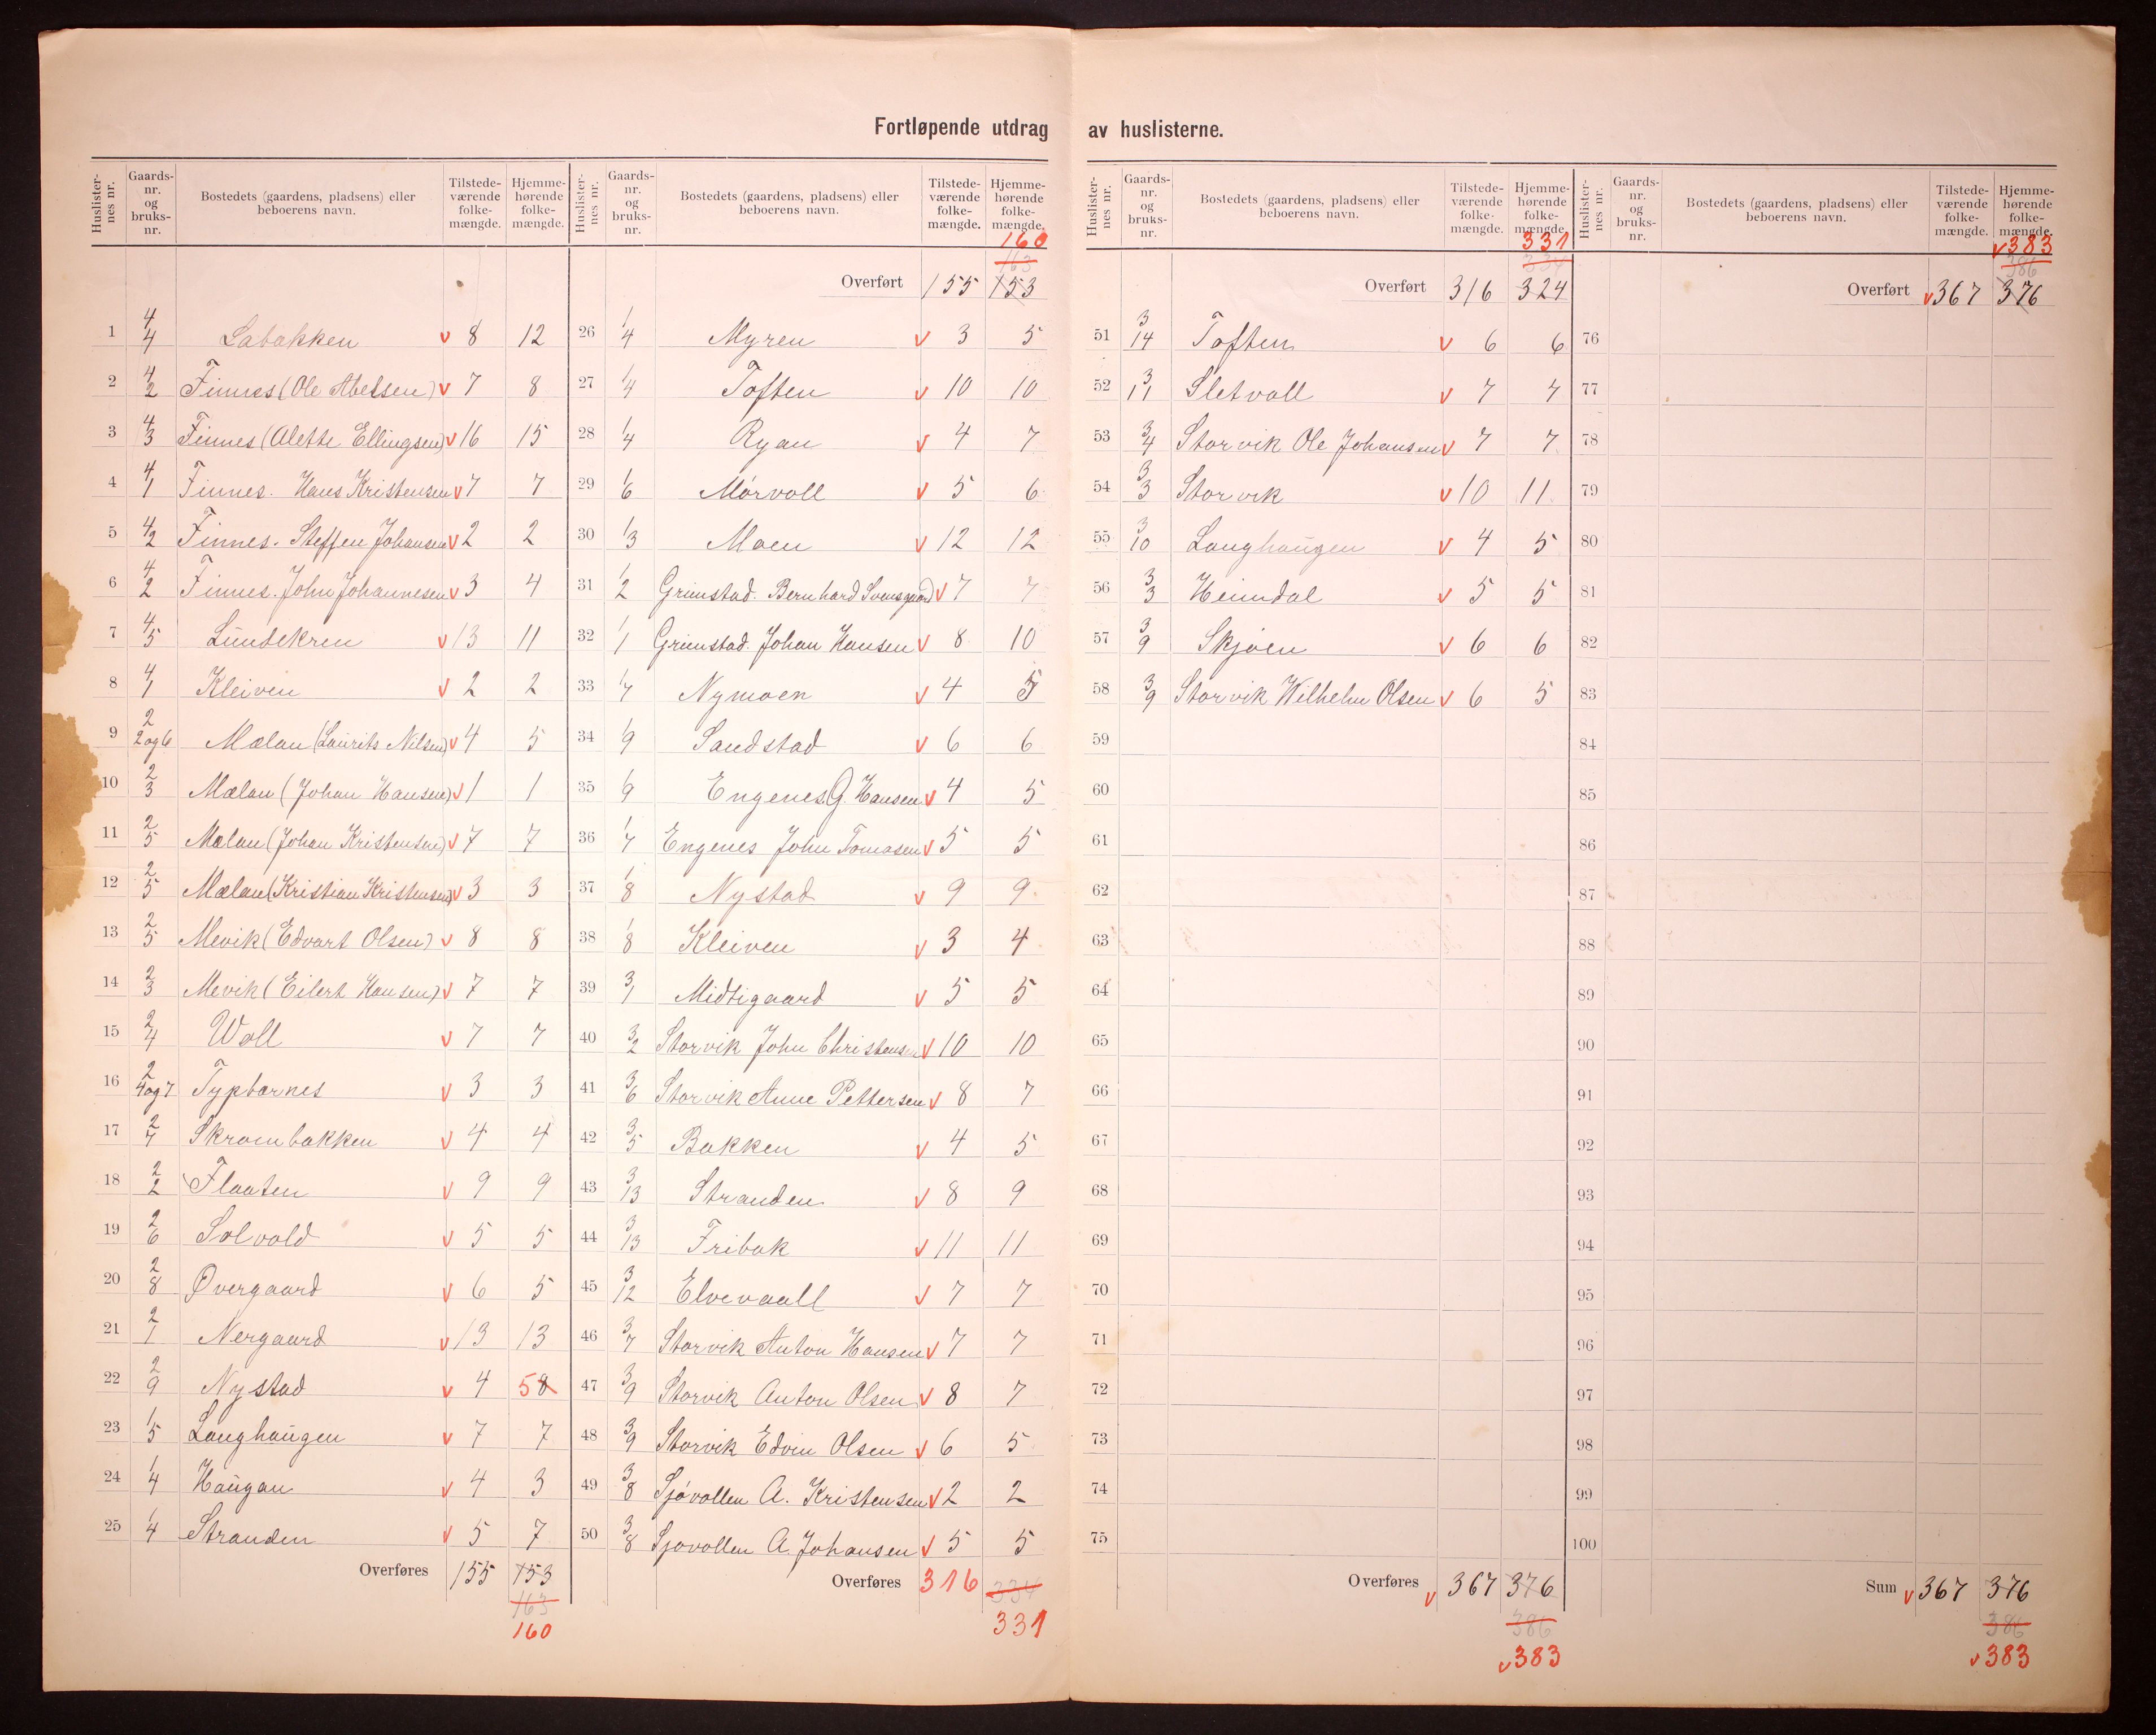 Fortløpende utdrag av huslisterne.
Huslister-nes nr. | Gaards-nr. og bruks-nr. | Bostedets (gaardens, pladsens) eller beboerens navn. | Tilstede-værende folke-mængde. | Hjemme-hørende folke-mængde.
1 4/4 Labakken v 8 12
2 4/2 Finnes (Ole Abelsen) v 7 8
3 4/3 Finnes (Alette Ellingsen) v 16 15
4 4/1 Finnes. Hans Kristensen v 7 7
5 4/2 Finnes. Steffen Johansen v 2 2
6 4/2 Finnes. John Johannesen v 3 4
7 4/5 Lundekren v 13 11
8 4/1 Kleiven v 2 2
9 2/2 og 6 Mælan (Laurits Nilsen) v 4 5
10 2/3 Mælan (Johan Hansen) v 1 1
11 2/5 Mælan (Johan Kristensen) v 7 7
12 2/5 Mælan (Kristian Kristensen) v 3 3
13 2/5 Mevik (Edvart Olsen) v 8 8
14 2/3 Mevik (Eilert Hansen) v 7 7
15 2/4 Woll v 7 7
16 2/4 og 7 v 3 3
17 2/7 v 4 4
18 2/2 Flaaten v 9 9
19 2/6 Solvold v 5 5
20 2/8 Øvergaard v 6 5
21 2/1 Nergaard v 13 13
22 2/9 Nystad v 4 5 8
23 1/5 Langhaugen v 7 7
24 1/4 Haugan v 4 3
25 1/4 Stranden v 5 7
Overføres 155 153
163
160
Huslister-nes nr. | Gaards-nr. og bruks-nr. | Bostedets (gaardens, pladsens) eller beboerens navn. | Tilstede-værende folke-mængde. | Hjemme-hørende folke-mængde.
160
163
Overført 155 153
26 1/4 Myren v 3 5
27 1/4 Toften v 10 10
28 1/4 Ryan v 4 7
29 1/6 Mórvoll v 5 6
30 1/3 Moen v 12 12
31 1/2 Grimstad. Bernhard Svensgaard v 7 7
32 1/1 Grimstad. Johan Hansen v 8 10
33 1/7 Nymoen v 4 5
34 1/9 Sandstad v 6 6
35 1/9 Engenes G. Hansen v 4 5
36 1/7 Engenes John Tomasen v 5 5
37 1/8 Nystad v 9 9
38 1/8 Kleiven v 3 4
39 3/1 Midtigaard v 5 5
40 3/2 Storvik John Christensen v 10 10
41 3/6 Storvik Anne Pettersen v 8 7
42 3/5 Bakken v 4 5
43 3/13 Stranden v 8 9
44 3/13 Fribak v 11 11
45 3/12 Elvevaall v 7 7
46 3/7 Storvik Anton Hansen v 7 7
47 3/9 Storvik Anton Olsen v 8 7
48 3/9 Storvik Edvin Olsen v 6 5
49 3/8 Sjóvollen A. Kristensen v 2 2
50 3/8 Sjovollen A. Johansen v 5 5
Overføres 316 334
331
Huslister-nes nr. | Gaards-nr. og bruks-nr. | Bostedets (gaardens, pladsens) eller beboerens navn. | Tilstede-værende folke-mængde. | Hjemme-hørende folke-mængde.
331
334
Overført 316 324
51 3/14 Toften v 6 6
52 3/11 Sletvoll v 7 7
53 3/4 Storvik Ole Johansen v 7 7
54 3/3 Storvik v 10 11
55 3/10 Langhaugen v 4 5
56 3/3 Heimdal v 5 5
57 3/9 Skjøen v 6 6
58 3/9 Storvik Wilhelm Olsen v 6 5
59
60
61
62
63
64
65
66
67
68
69
70
71
72
73
74
75
Overføres v 367 376
386
v 383
Huslister-nes nr. | Gaards-nr. og bruks-nr. | Bostedets (gaardens, pladsens) eller beboerens navn. | Tilstede-værende folke-mængde. | Hjemme-hørende folke-mængde.
v 383
386
Overført v 367 376
76
77
78
79
80
81
82
83
84
85
86
87
88
89
90
91
92
93
94
95
96
97
98
99
100
Sum v 367 376
386
v 383